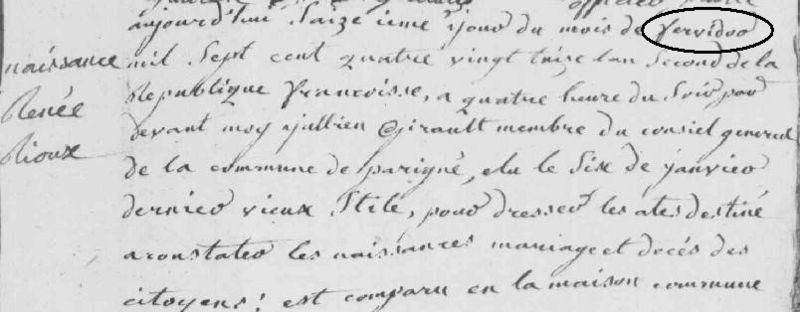 aujourd'hui Saize ieme jour du mois de fervidor
naissance
mil Sept cent quatre vingt traize lan Second de la
Republique francoisse, a quatre heure du Soir par
Renée
devant moy jullien Girault membre du consiel general
Rioux
de la commune de parigné, elu le Sixe de janvier
dernier vieux Stile, pour dresser les ates destiné
a constater les naissances mariage et decés des
citoyens : est comparu en la maison commune